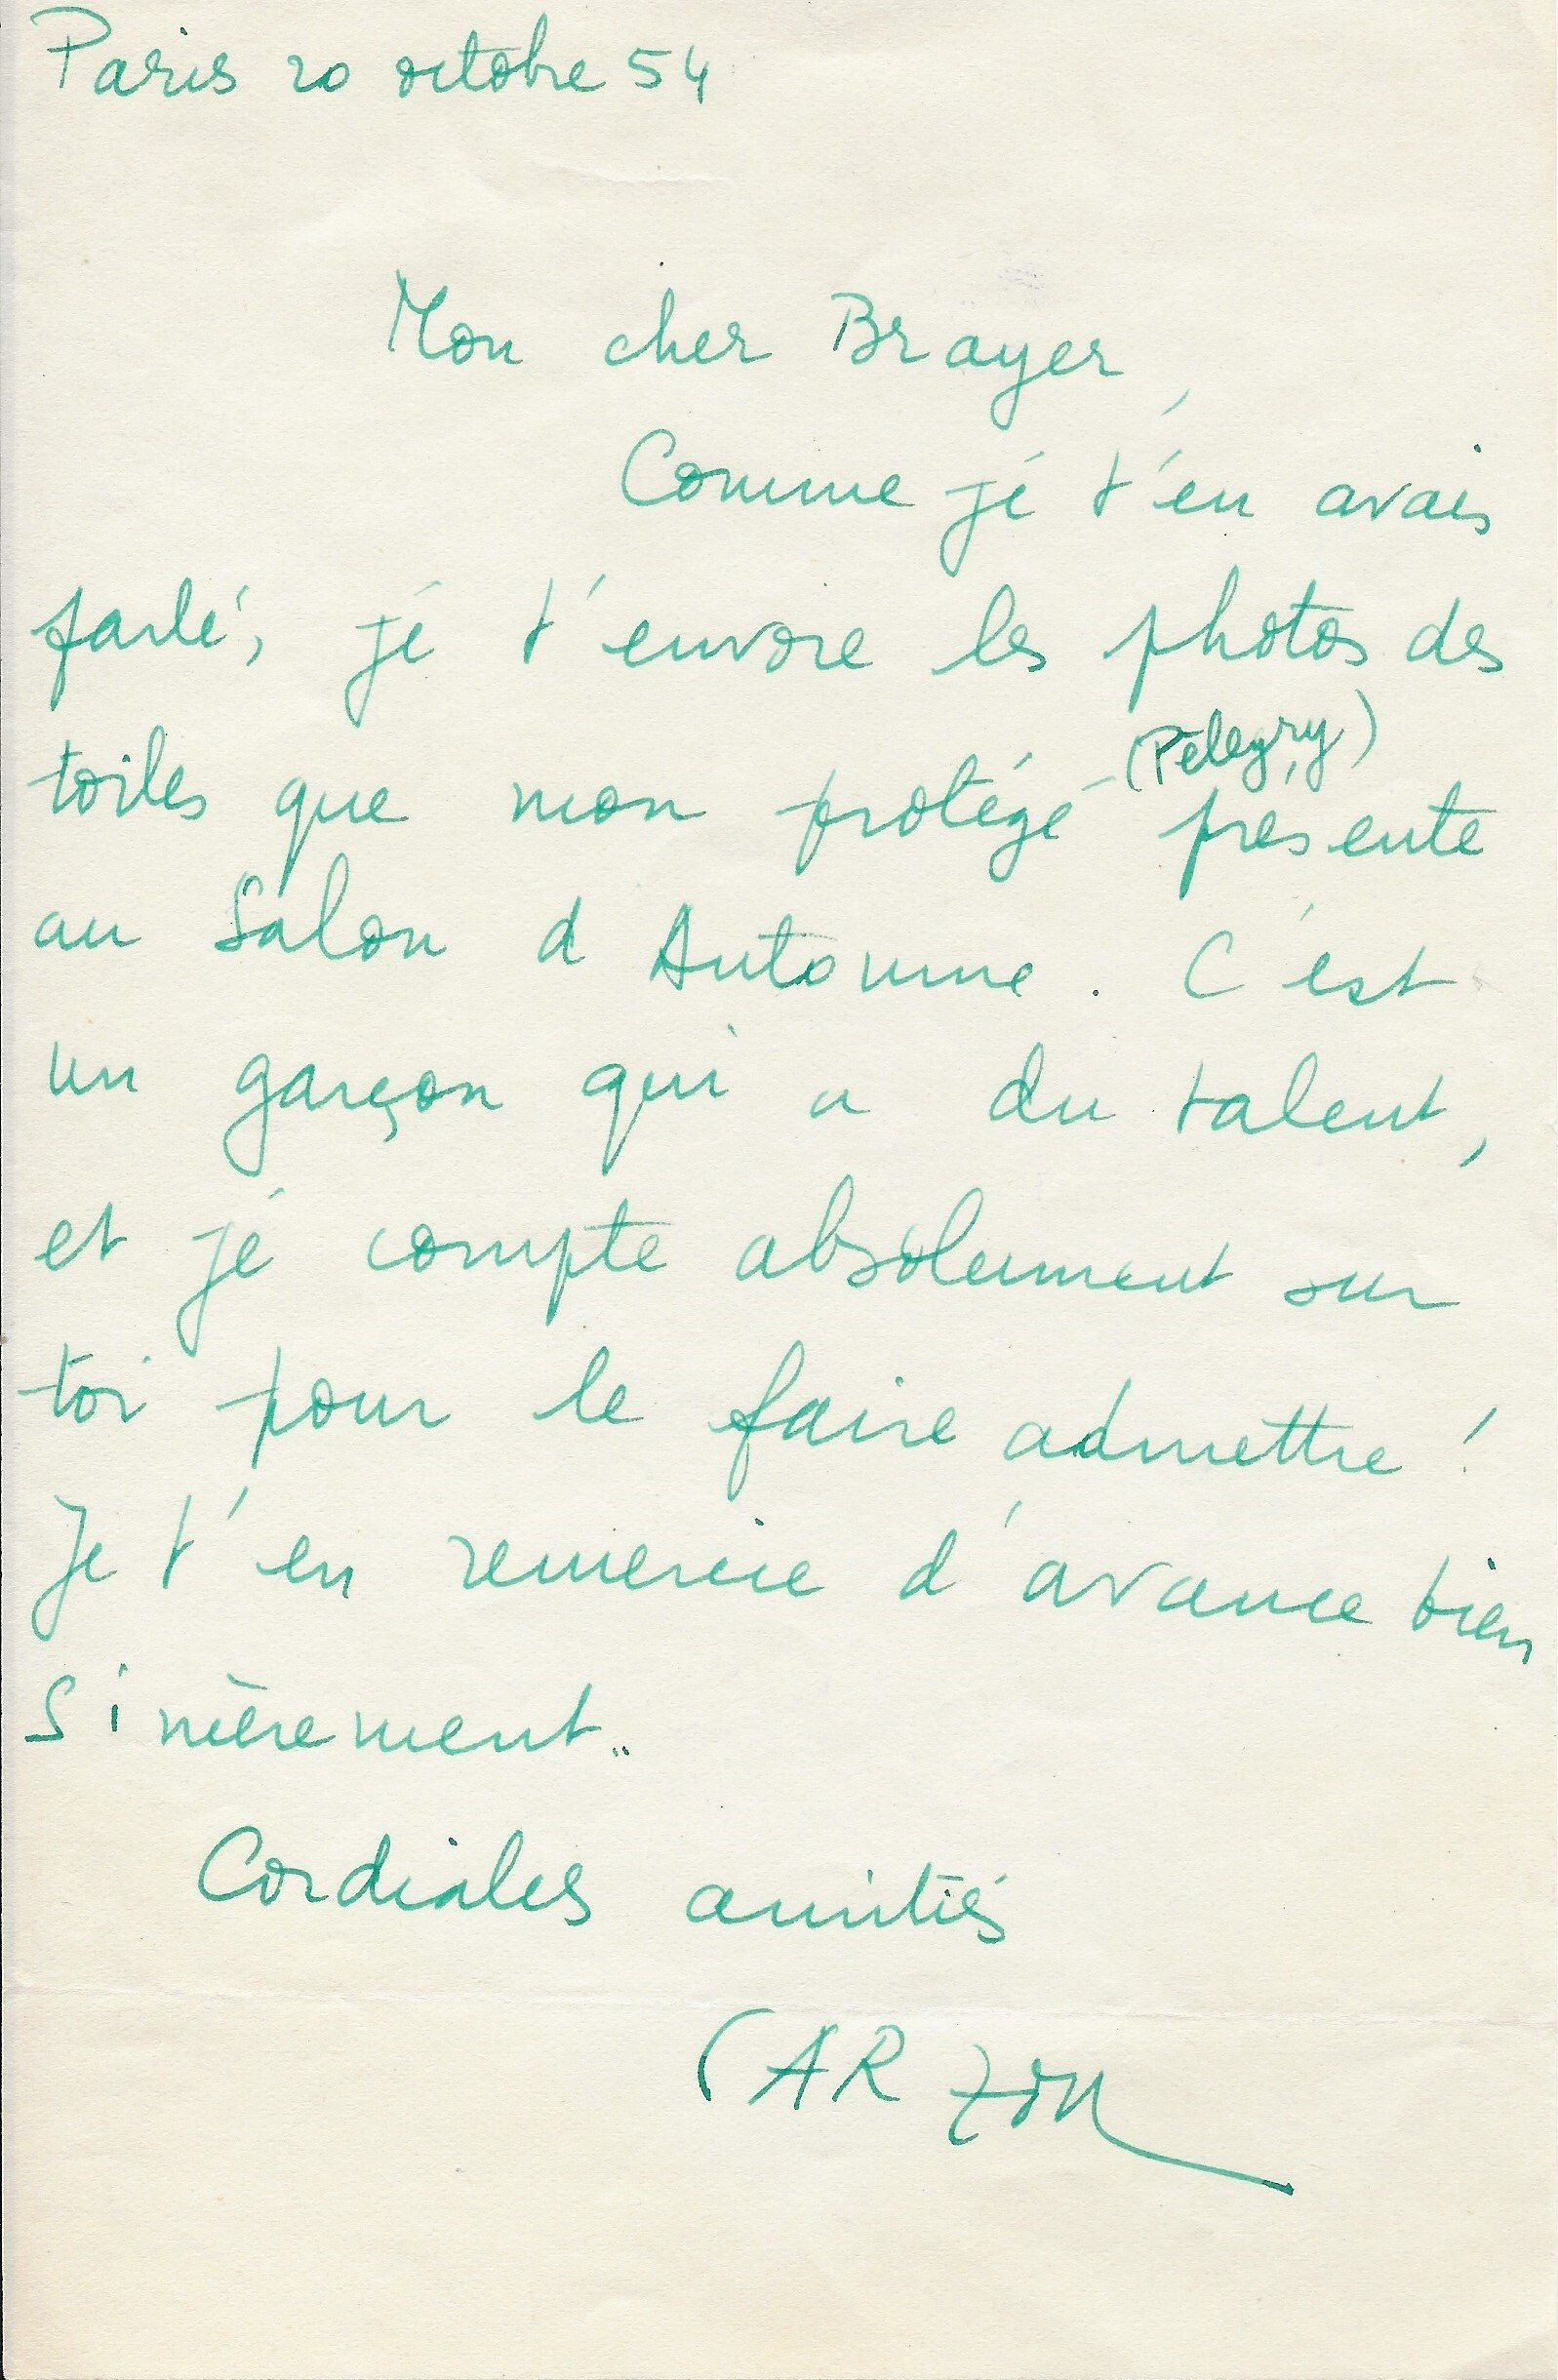 Paris 20 octobre 54
Mon cher Brayer,
Comme je t'en avais
parlé, je t'envoie les photos des
toiles que mon protégé (Pélegry) présente
au Salon d'Automne. C'est
un garçon qui a du talent,
et je compte absolument sur
toi pour le faire admettre !
Je t'en remercie d'avance bien
sincèrement..
Cordiales amitiés
CARZOU